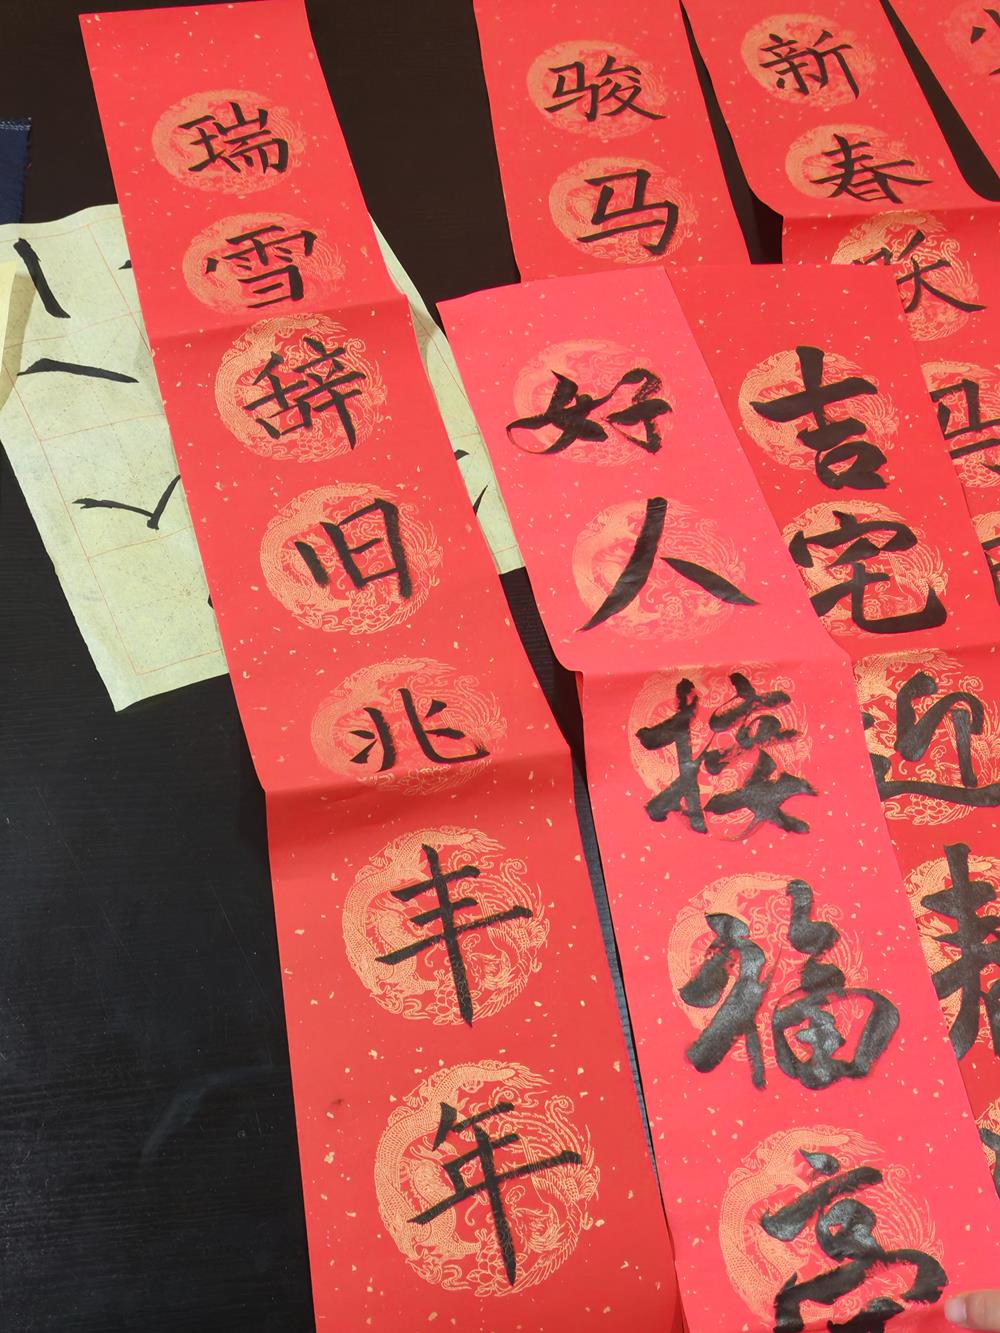 瑞雪辞旧兆丰年
骏马
新春
跃马
好人接福
吉宅迎春